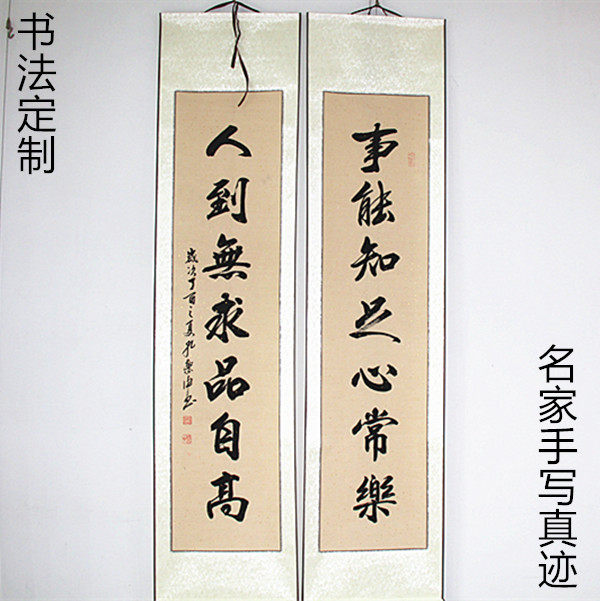 书法定制
事能知足心常樂
人到無求品自高
歲次丁酉之夏
名家手写真迹